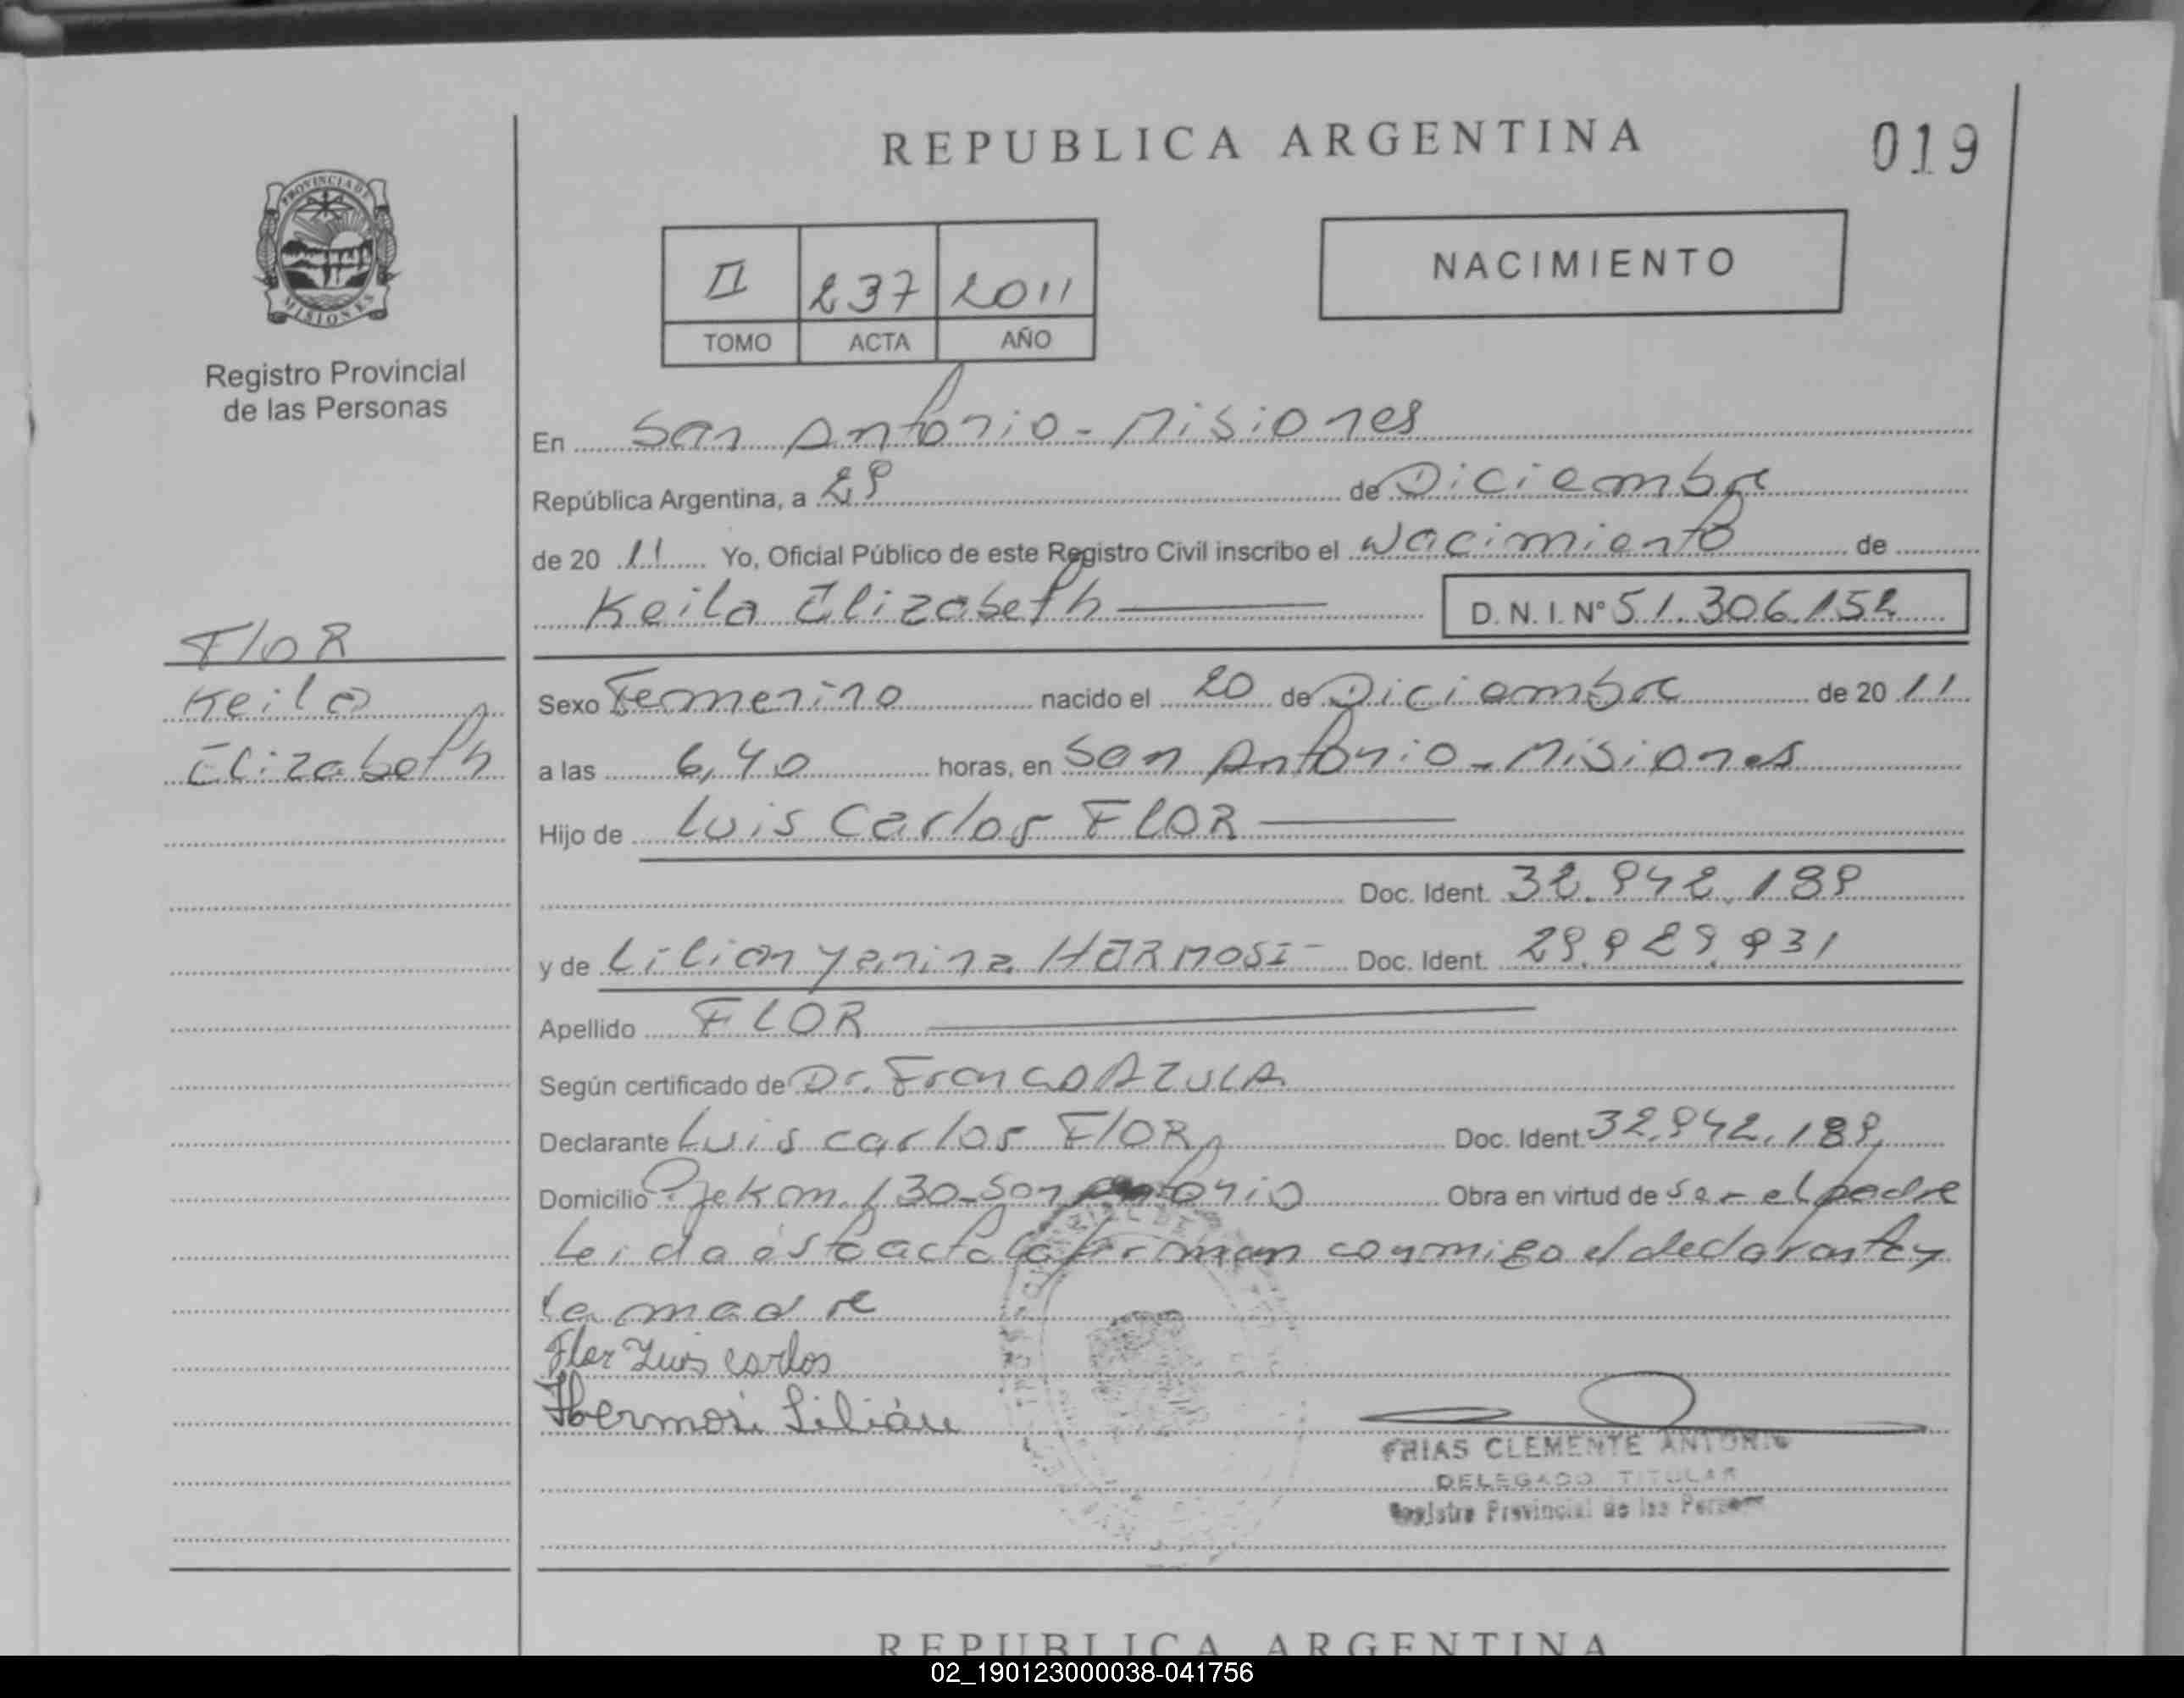 REPUBLICA ARGENTINA
019
PROVINCIA DE
MISIONES
Registro Provincial
de las Personas
II 237 2011
TOMO ACTA AÑO
NACIMIENTO
En San Antonio - Misiones
República Argentina, a 29 de Diciembre
de 20 11 Yo, Oficial Público de este Registro Civil inscribo el Nacimiento de
Keila Elizabeth
D. N. I. Nº 51.306.152
FloR
Keila
Elizabeth
Sexo Femenino nacido el 20 de Diciembre de 20 11
a las 6,40 horas, en San Antonio - Misiones
Hijo de Luis Carlos FLOR
Doc. Ident. 32.942.189
y de Lilian Yanina HERMOSI Doc. Ident. 29.929.931
Apellido FLOR
Según certificado de Dr. Franco AZULA
Declarante Luis Carlos FlOR Doc. Ident. 32.942.189
Domicilio Pje Km. 130 - San Antonio Obra en virtud de ser el padre
Leida esta acta la firman conmigo el declarante y
la madre
Flor Luis Carlos
Hermosi Lilián
FRIAS CLEMENTE ANTONIO
DELEGADO TITULAR
Registro Provincial de las Personas
REPUBLICA ARGENTINA
02_190123000038-041756